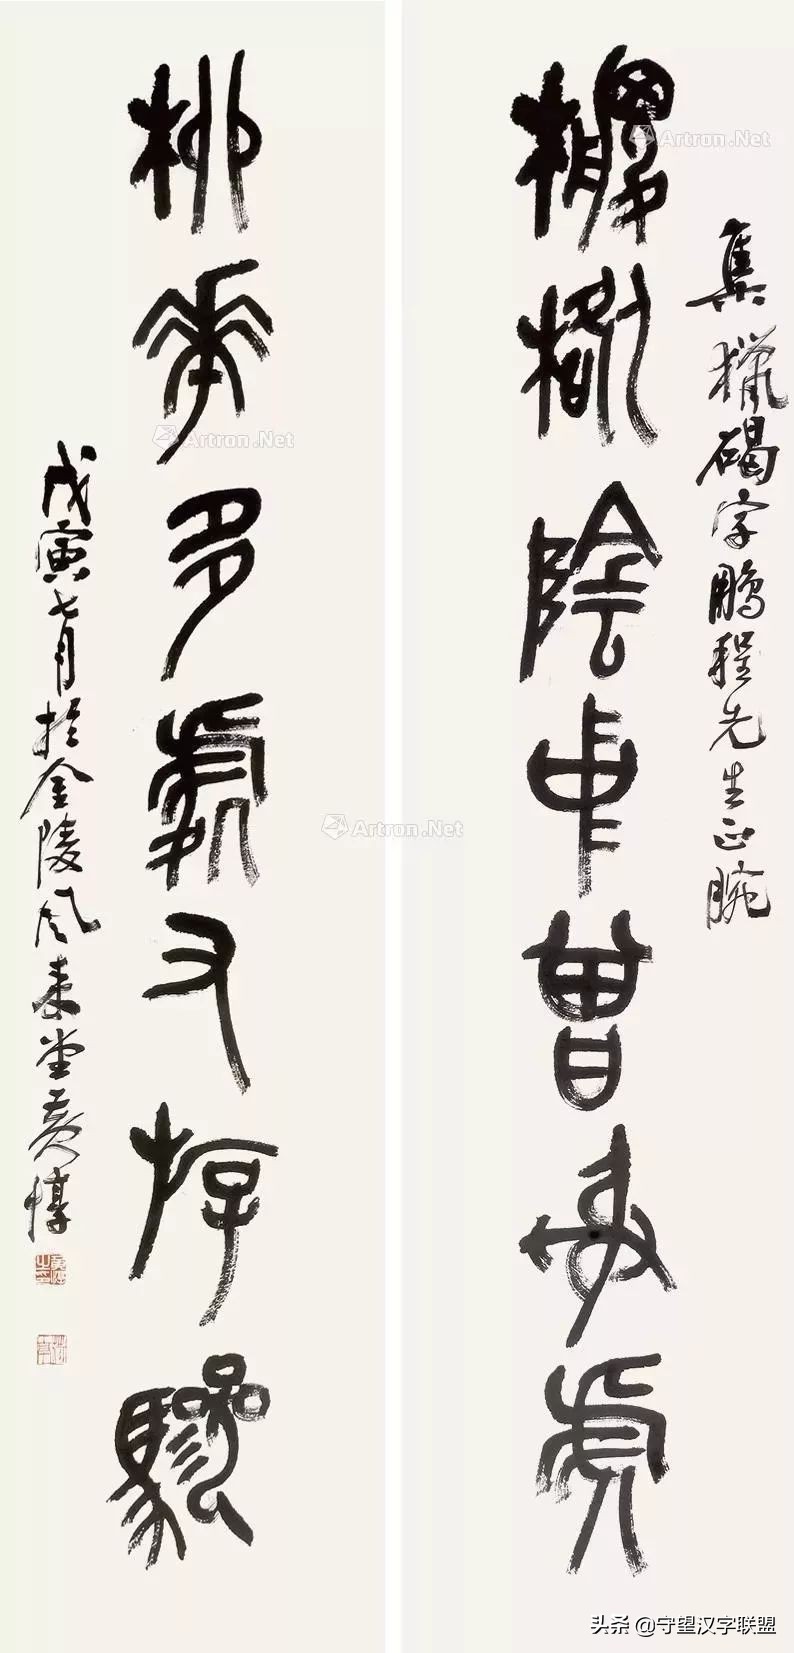 陰中曾射虎
集獵碣字鵬程先生正腕
柳華多處又斿驂
戊寅七月於金陵風來堂黃惇
Artron.Net
Artron.Net
Artron.Net
头条 @守望汉字联盟